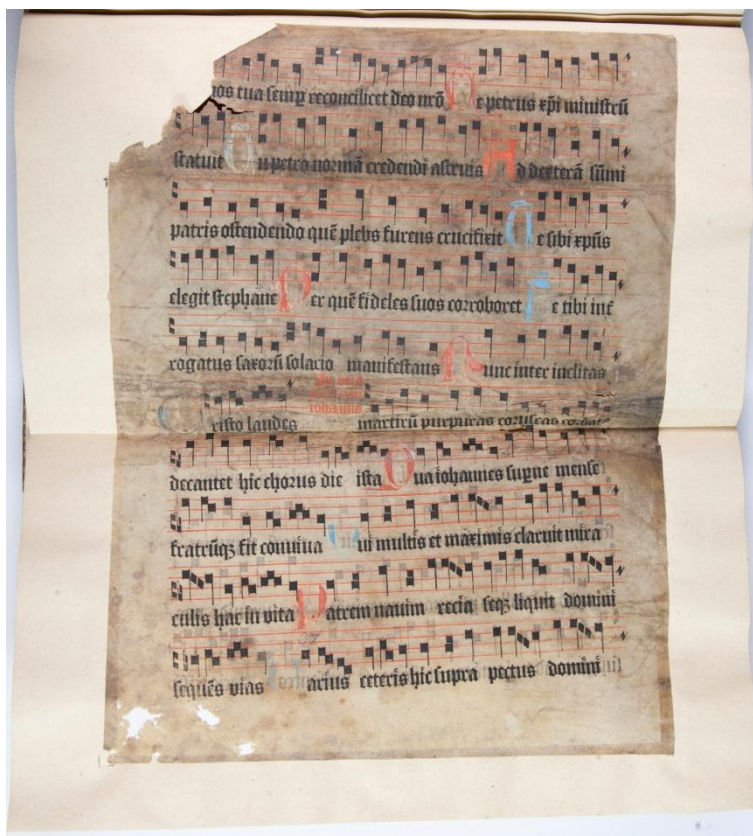 nos tua semp reconciliet deo nr̄o Te petrus xp̄i ministrū
statuit Tu petro normā credendi astruis Ad dexterā sūmi
patris ostendendo quē plebs furens crucifixit Te sibi xp̄us
elegit stephane Per quē fideles suos corroboret Se tibi int̄
rogatus saxorū solacio manifestans Nunc inter inclitas
Iohannis
Cristo laudes martirū purpuras coruscas
decantet hic chorus die ista Qua iohannes supne mense
fratrūqꝫ fit conviva Qui multis et maximis claruit mira
culis hac in vita Patrem navim recia seqꝫ liquit domini
sequēs vias Carius ceteris hic supra pectus domini